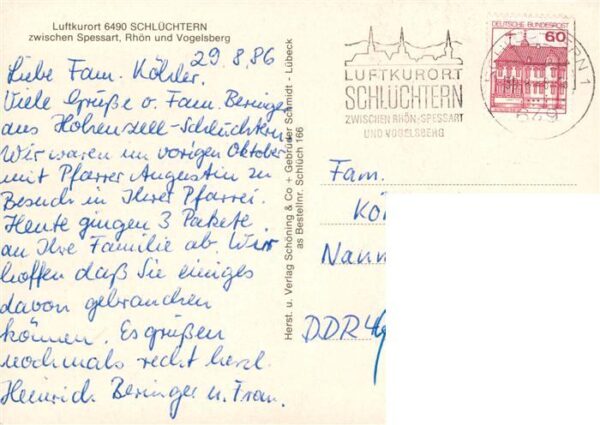 Luftkurort 6490 SCHLÜCHTERN
zwischen Spessart, Rhön und Vogelsberg
29.8.86
Liebe Fam. Köhler.
Viele Grüße v. Fam. Beringer
aus Hohenzell-Schlüchtern
Wir waren im vorigen Oktober
mit Pfarrer Augustin zu
Besuch in Ihrer Pfarrei.
Heute gingen 3 Pakete
an Ihre Familie ab. Wir
hoffen daß Sie einiges
davon gebrauchen
können. Es grüßen
nochmals recht herzl.
Heinrich Beringer u. Frau.
Herst. u. Verlag Schöning & Co + Gebrüder Schmidt - Lübeck
as Bestellnr. Schlüch 166
LUFTKURORT
SCHLÜCHTERN
ZWISCHEN RHÖN-SPESSART
UND VOGELSBERG
DEUTSCHE BUNDESPOST
60
649
Fam.
Kö
Nann
DDR